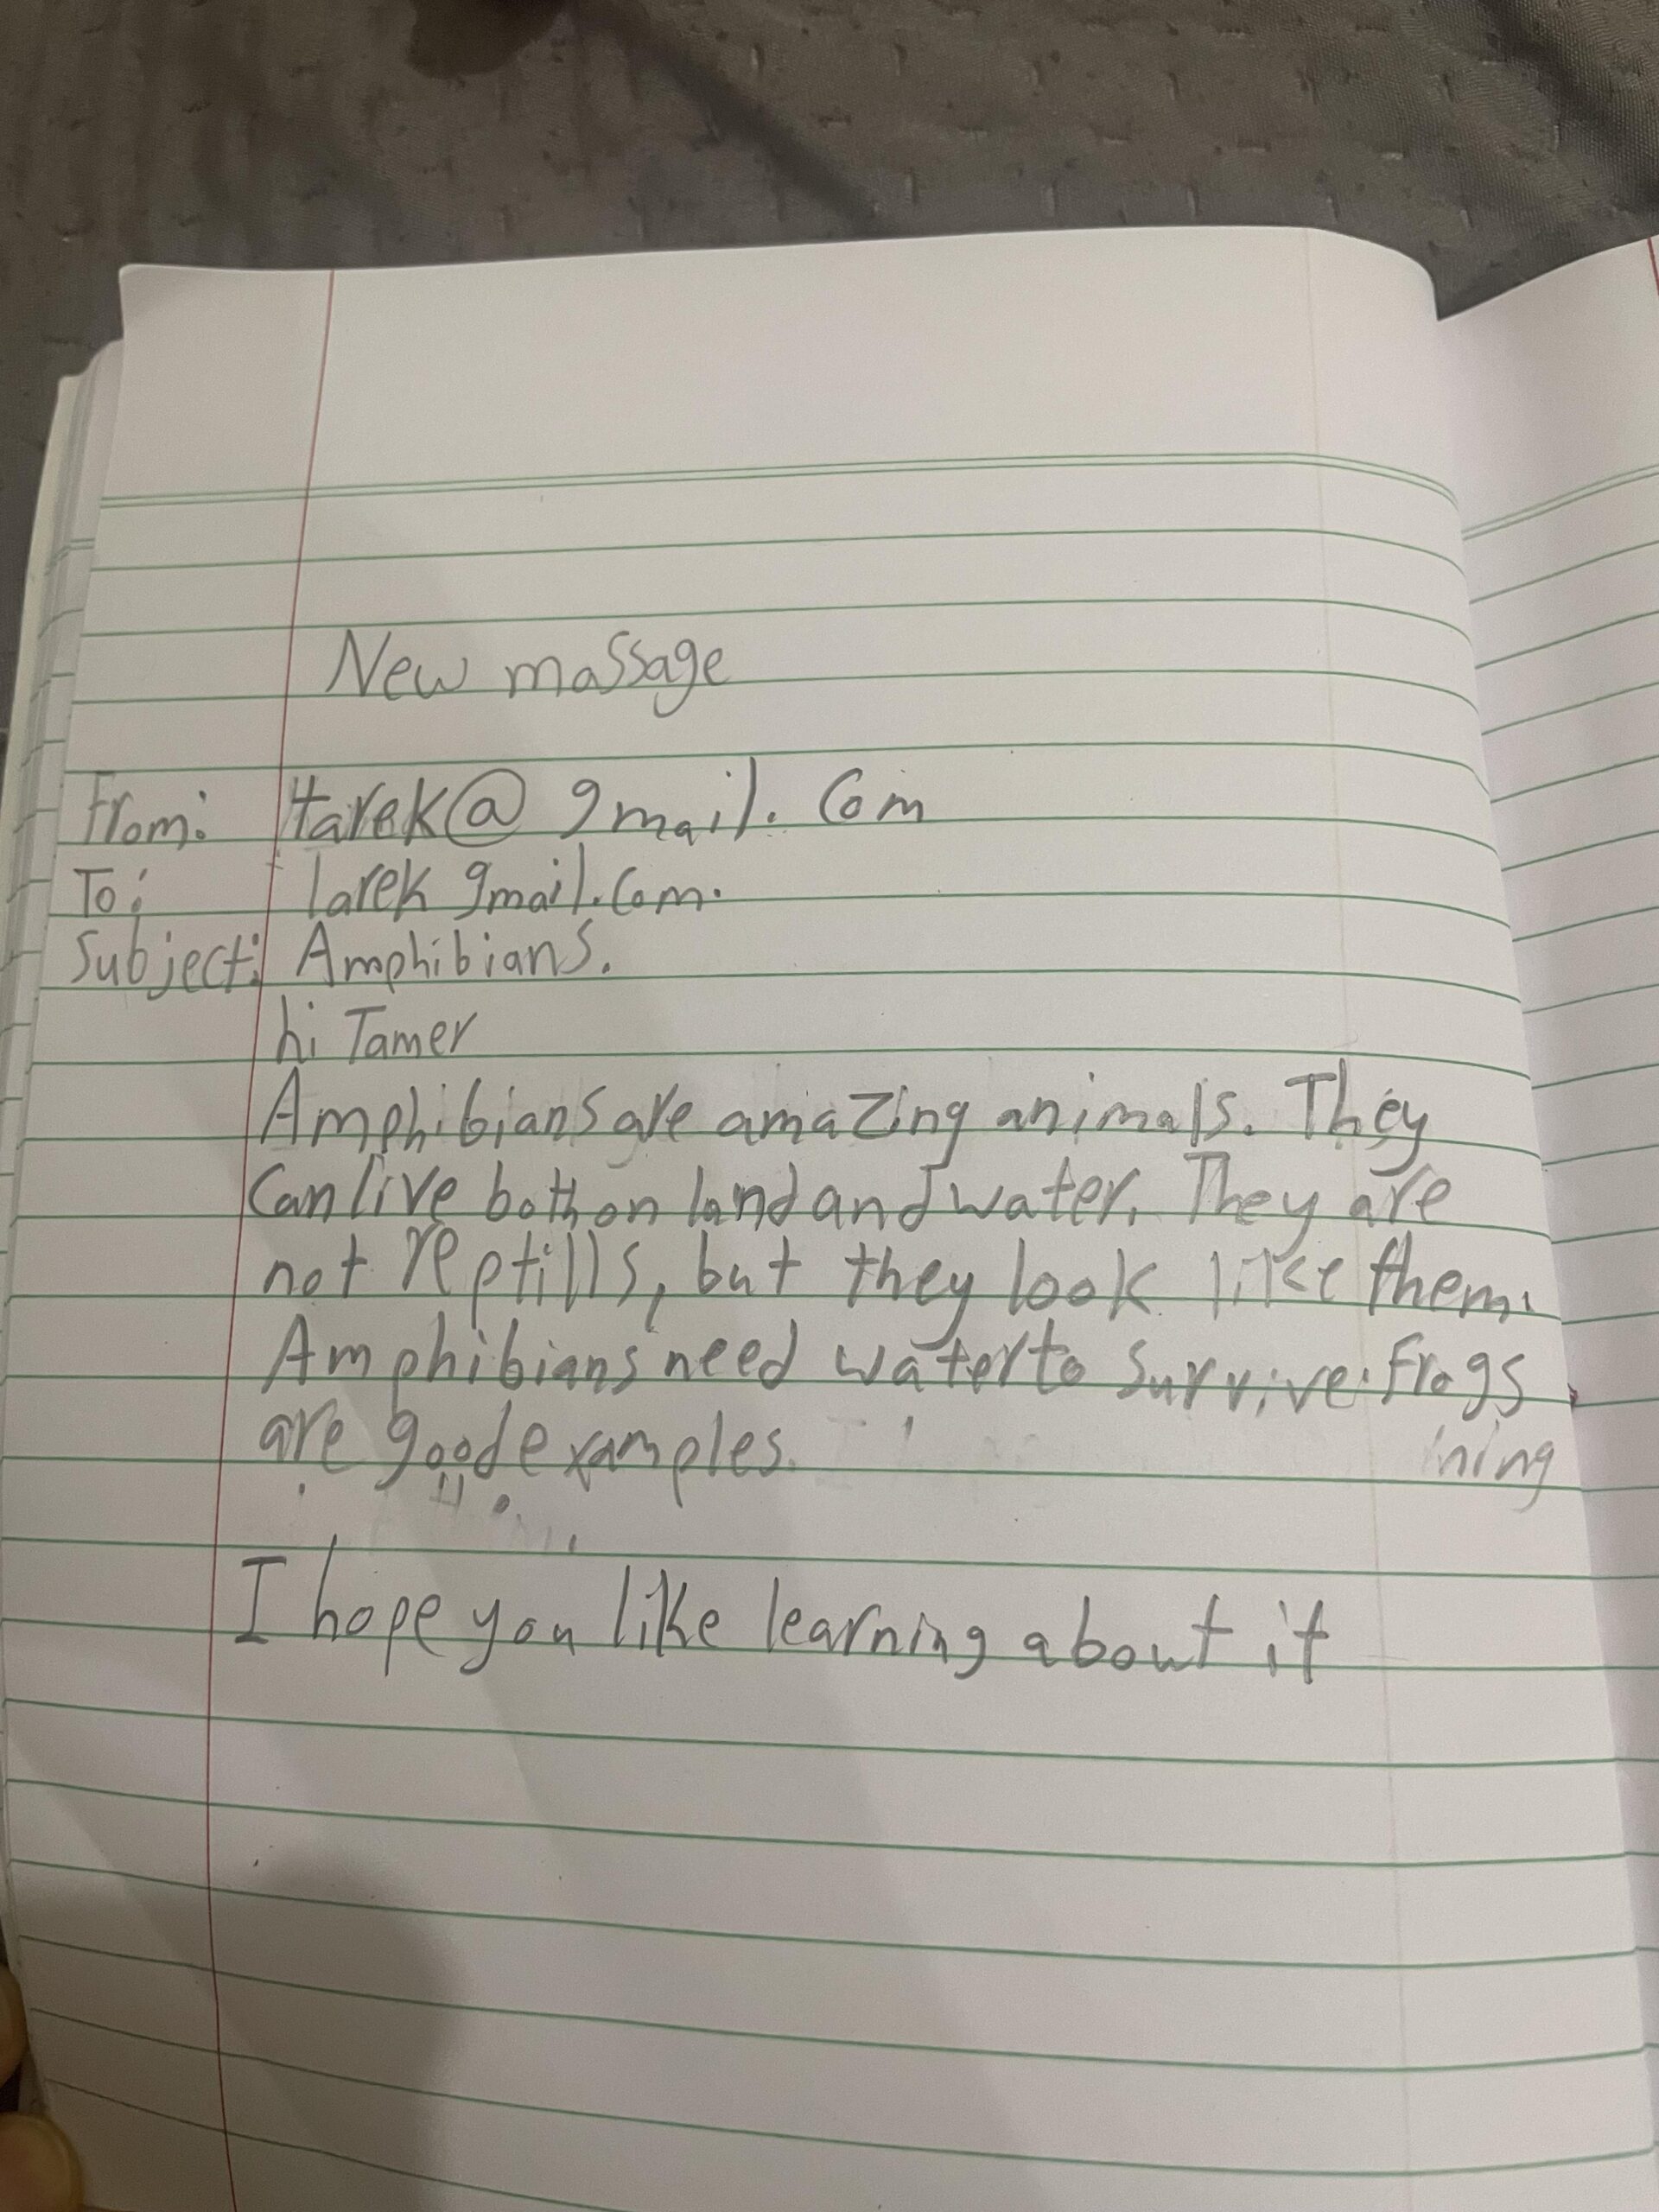 New massage
From: tarek@gmail.com
To: larek gmail.com.
Subject: Amphibians.
hi Tamer
Amphibians are amazing animals. They
Can live both on land and water. They are
not reptills, but they look like them.
Amphibians need water to survive. Frogs
are good examples.
ning
I hope you like learning about it